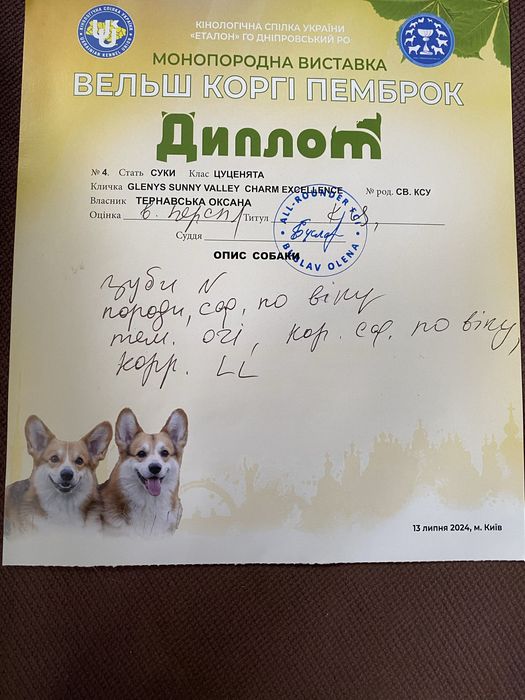 КІНОЛОГІЧНА СПІЛКА УКРАЇНИ
«ЕТАЛОН» ГО ДНІПРОВСЬКИЙ РО
МОНОПОРОДНА ВИСТАВКА
ВЕЛЬШ КОРГІ ПЕМБРОК
Диплом
№ 4. Стать СУКИ Клас ЦУЦЕНЯТА
Кличка GLENYS SUNNY VALLEY CHARM EXCELLENCE № род. СВ. КСУ
Власник ТЕРНАВСЬКА ОКСАНА
Оцінка б. персп Титул
Суддя
ALL-ROUNDER FCI
BUSLAV OLENA
ОПИС СОБАКИ
зуби N
породи, сф. по віку
тем. очі, кор. сф. по віку,
корр. LL
13 липня 2024, м. Київ